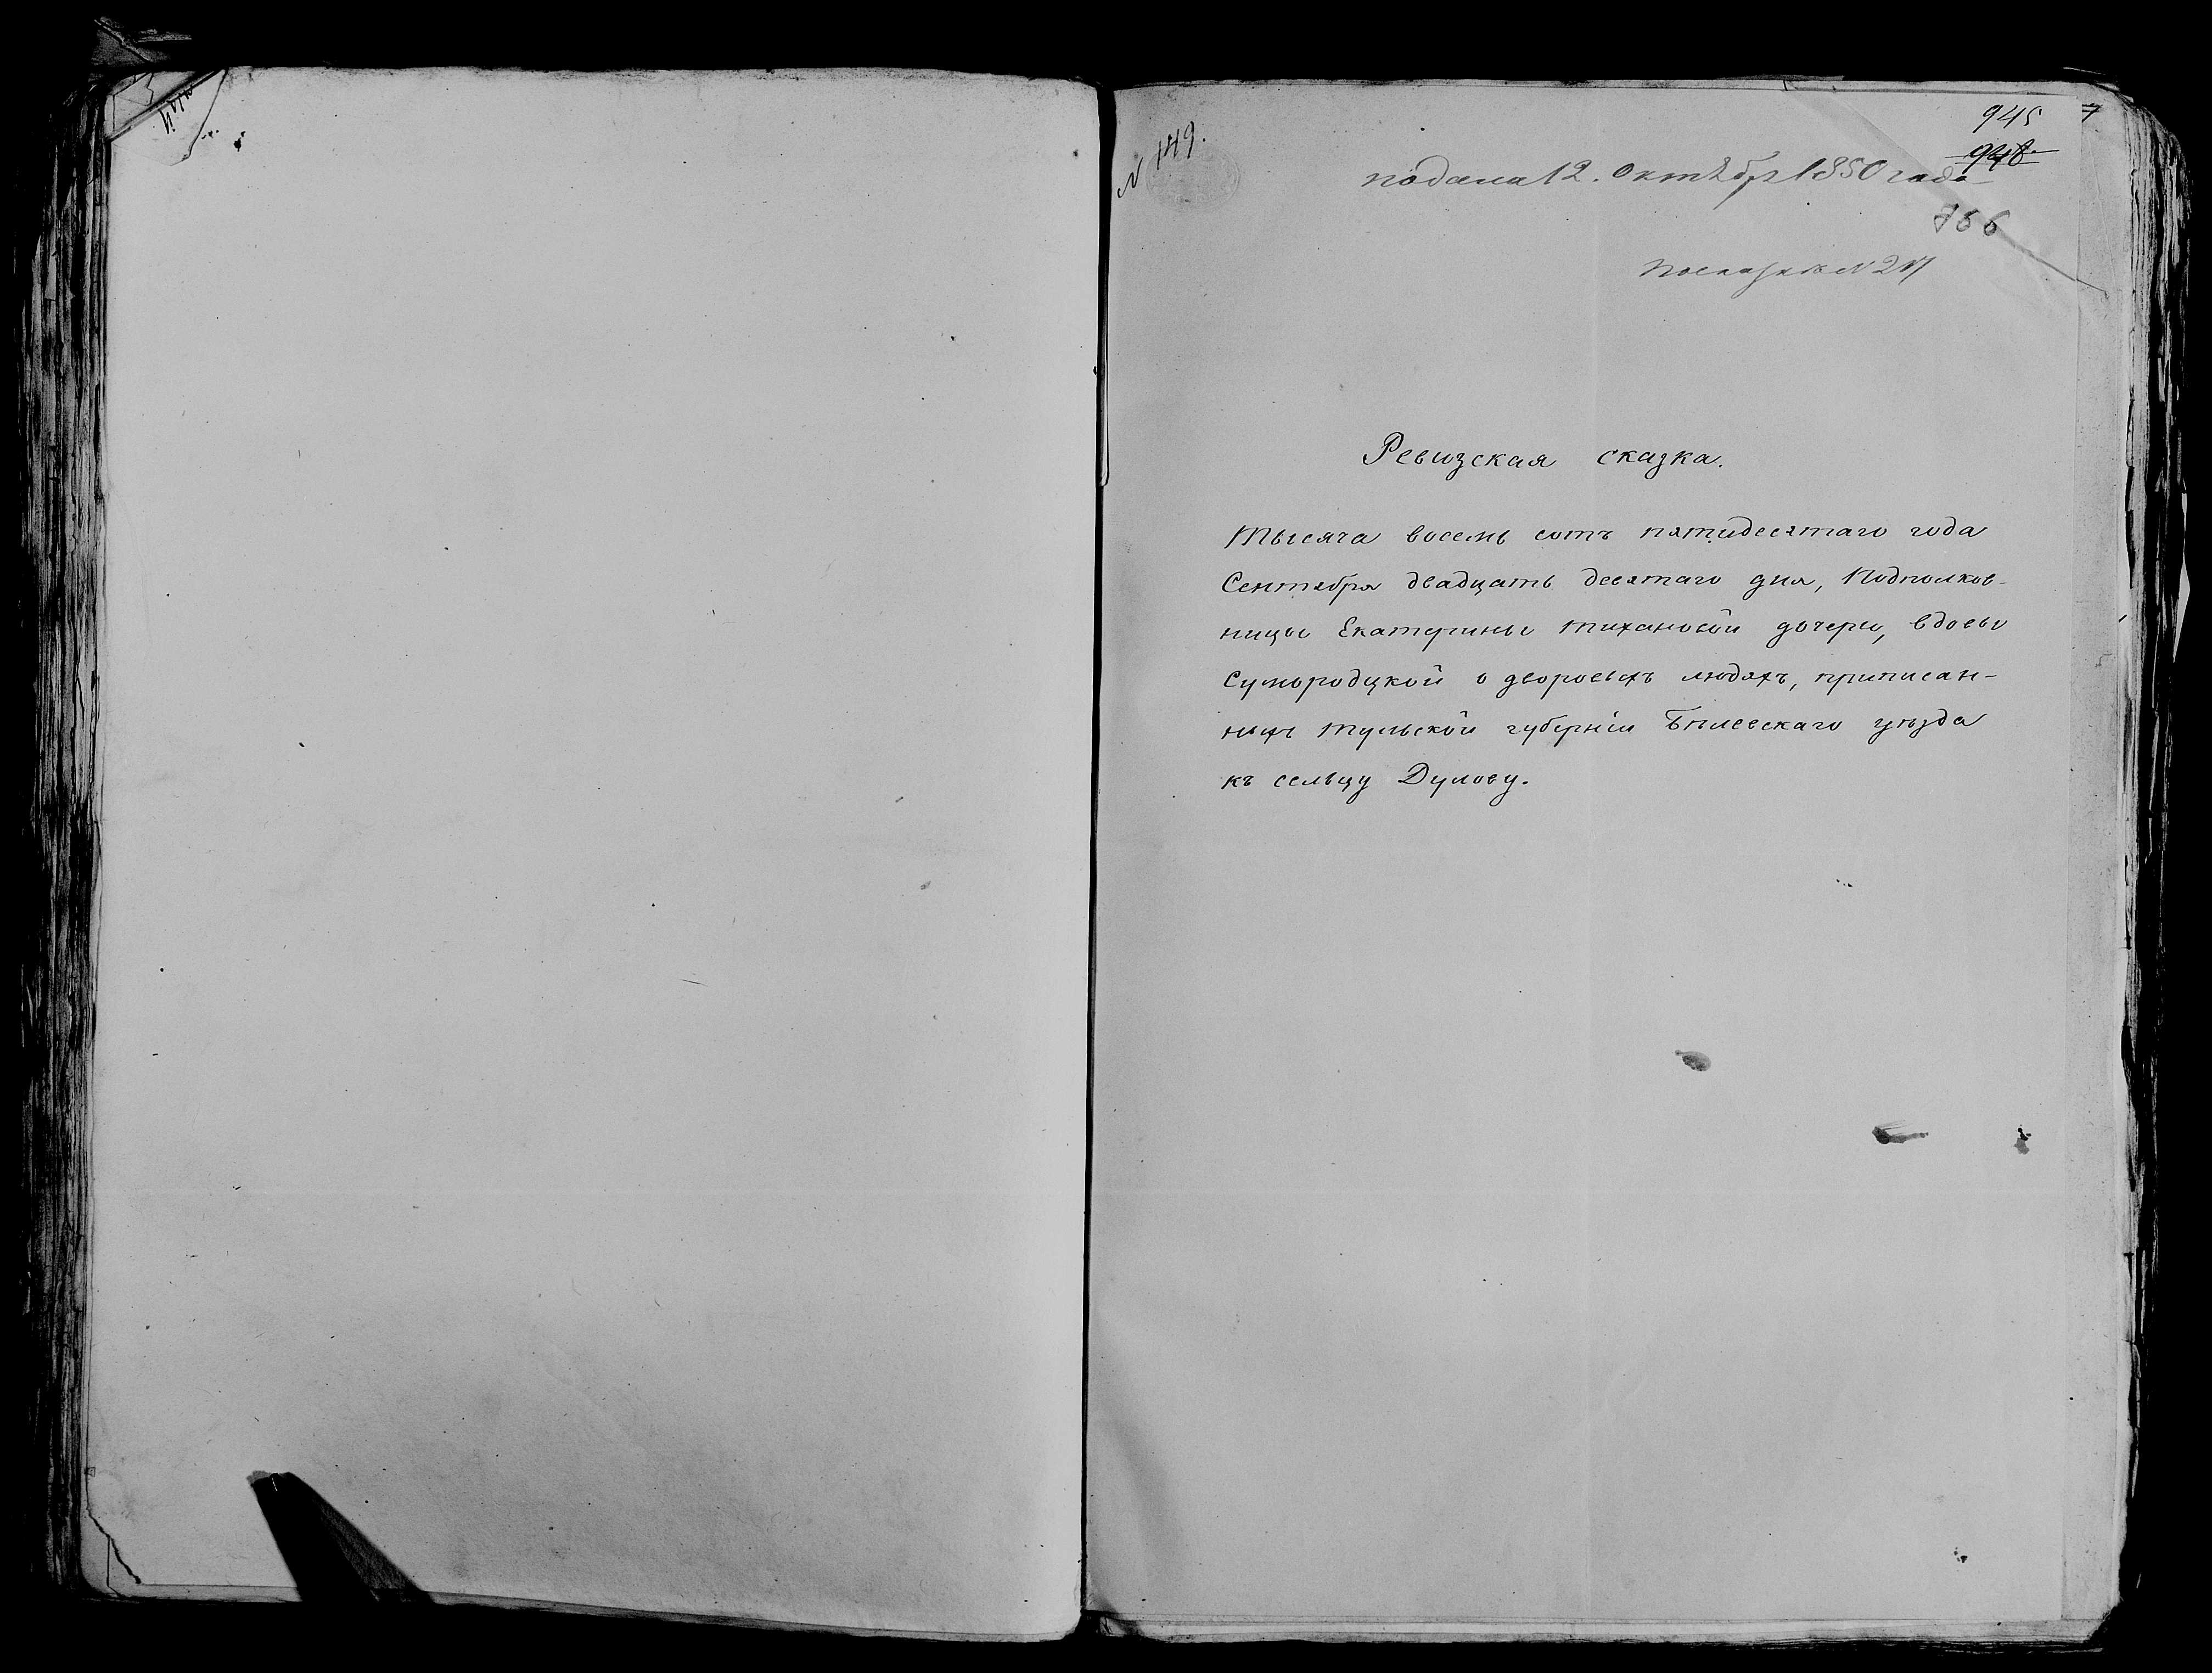 N 149.
945
948
подана 12. Октября 1850 года
766
По сказкѣ N 217
Ревизская сказка.
Тысяча восемь сотъ пятидесятаго года
Сентября двадцать девятаго дня, Подполков-
ницы Екатерины Тихановой дочери, вдовы
Сумородцкой о дворовыхъ людяхъ, приписан-
ныхъ Тульской губерніи Бѣлевскаго уѣзда
къ сельцу Дулову.